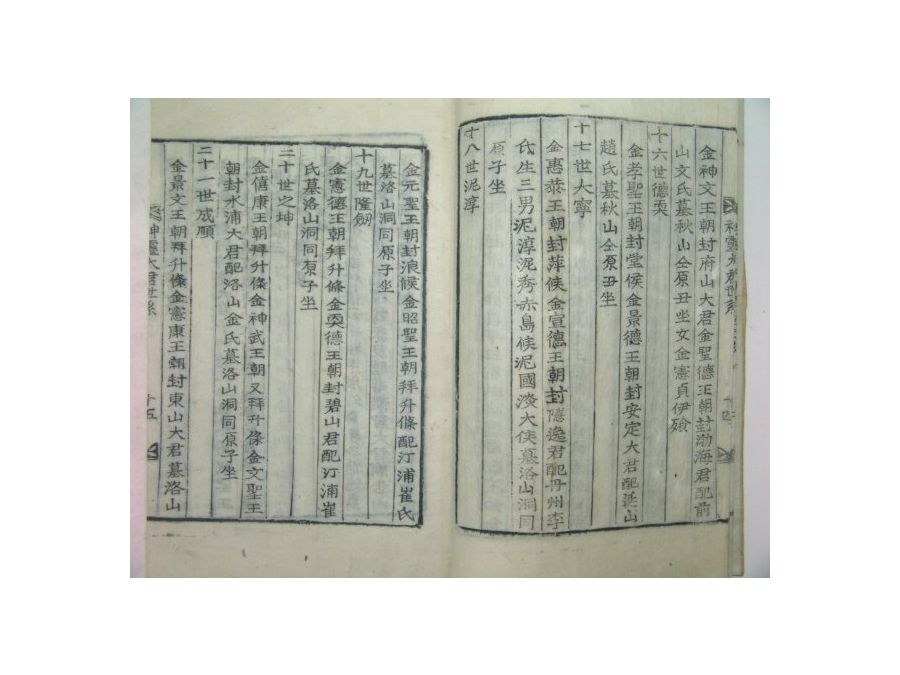 金神文王朝封府山大君金聖德王朝封渤海君配前
山文氏墓秋山仝原丑坐女金憲貞伊飱
十六世德
金孝聖王朝封堂候金景德王朝封安定大君配延山
趙氏墓秋山仝原丑坐
十七世大寧
金惠恭王朝封萍候金宣德王朝封隱逸君配丹州李
氏生三男泥淳泥秀赤島候泥國浚大侯墓洛山洞同
原子坐
十八世泥淳
金元聖王朝封浪候金昭聖王朝拜升條配汀浦崔氏
墓洛山洞同原子坐
十九世隆
金憲德王朝拜升條金德王朝封碧山君配汀浦崔
氏墓洛山洞同原子坐
二十世之坤
金僖康王朝拜升條金神武王朝又拜升條金文聖王
朝封水浦大君配洛山金氏墓洛山洞同原子坐
二十一世成願
金景文王朝拜升條金憲康王朝封東山大君墓洛山
神靈大君世系
十五